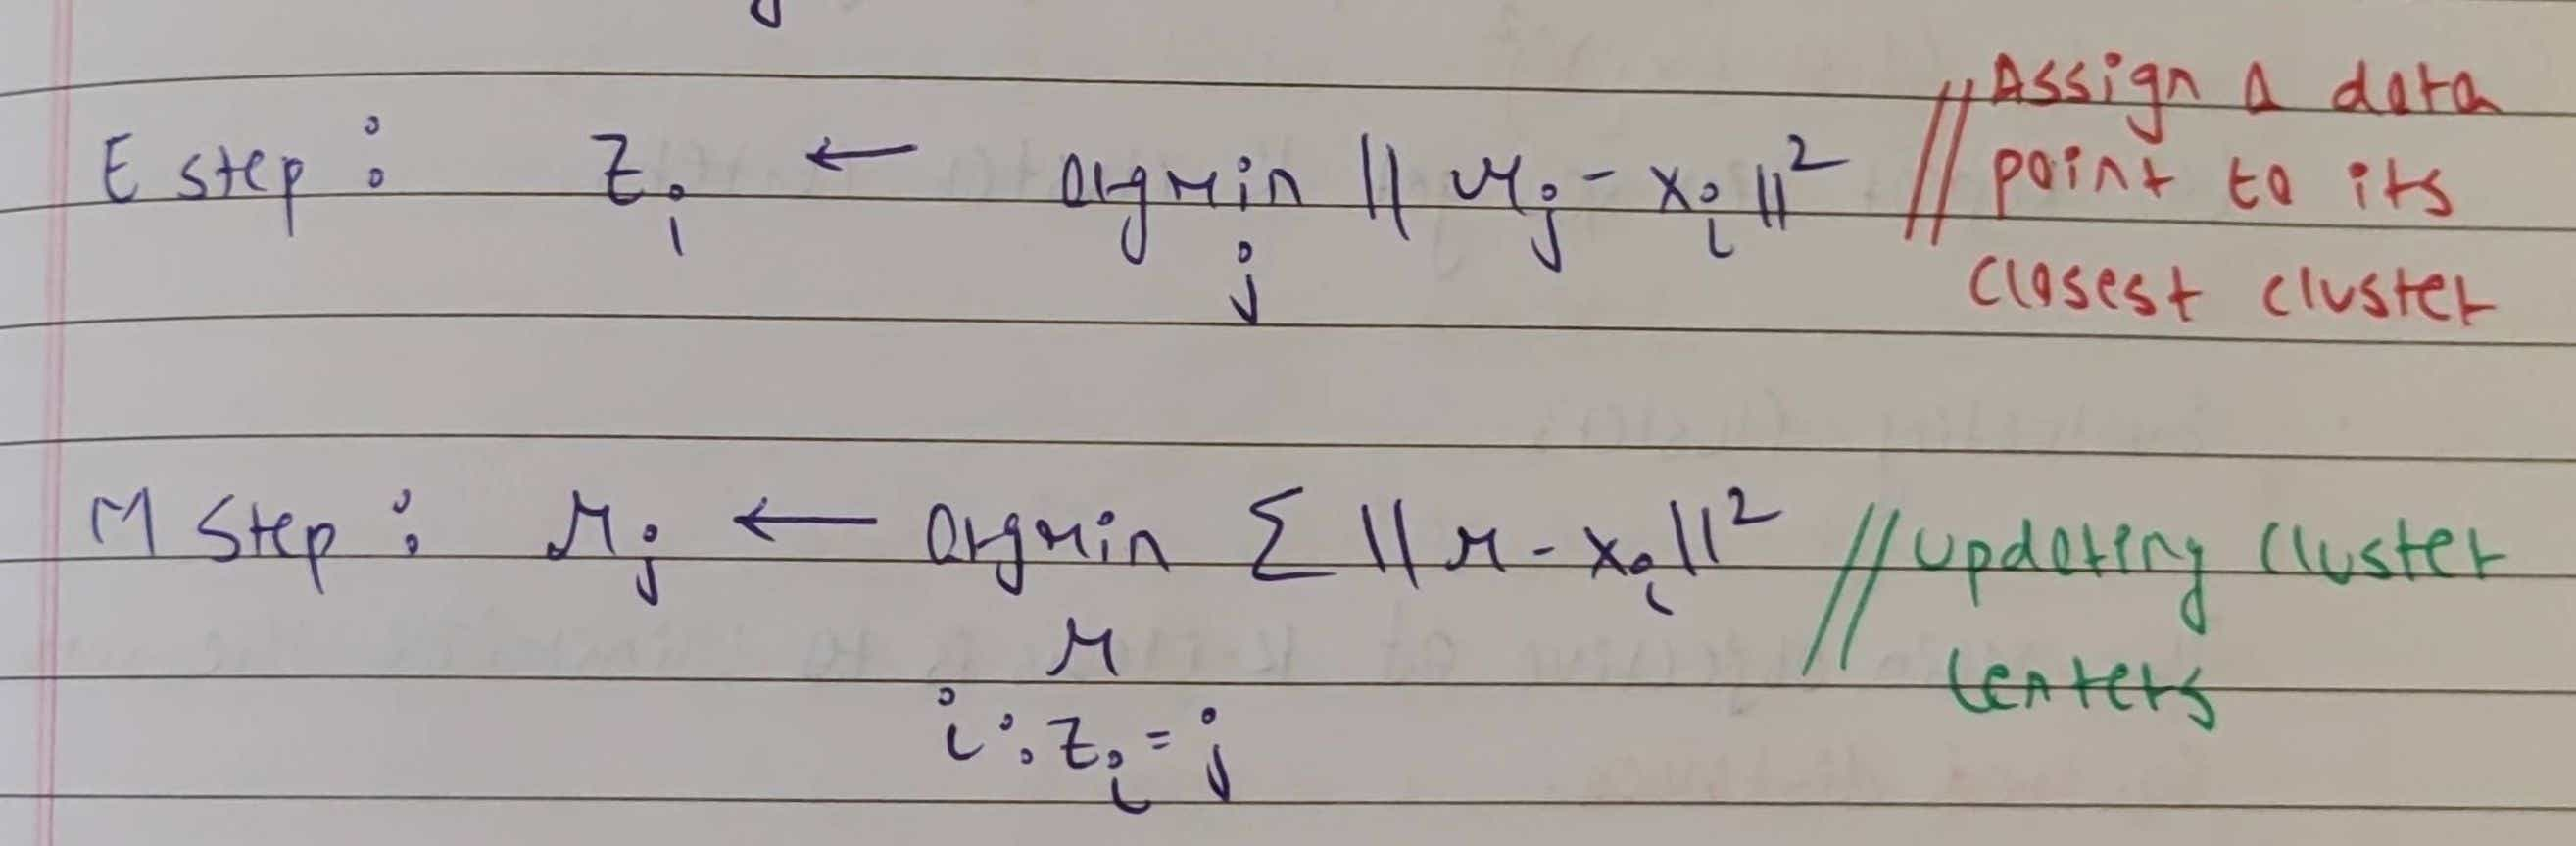 E step : z_i ← argmin_j || μ_j - x_i ||² // Assign a data
point to its
closest cluster
M step : μ_j ← argmin Σ || μ - x_i ||² // updating cluster
μ centers
i : z_i = j